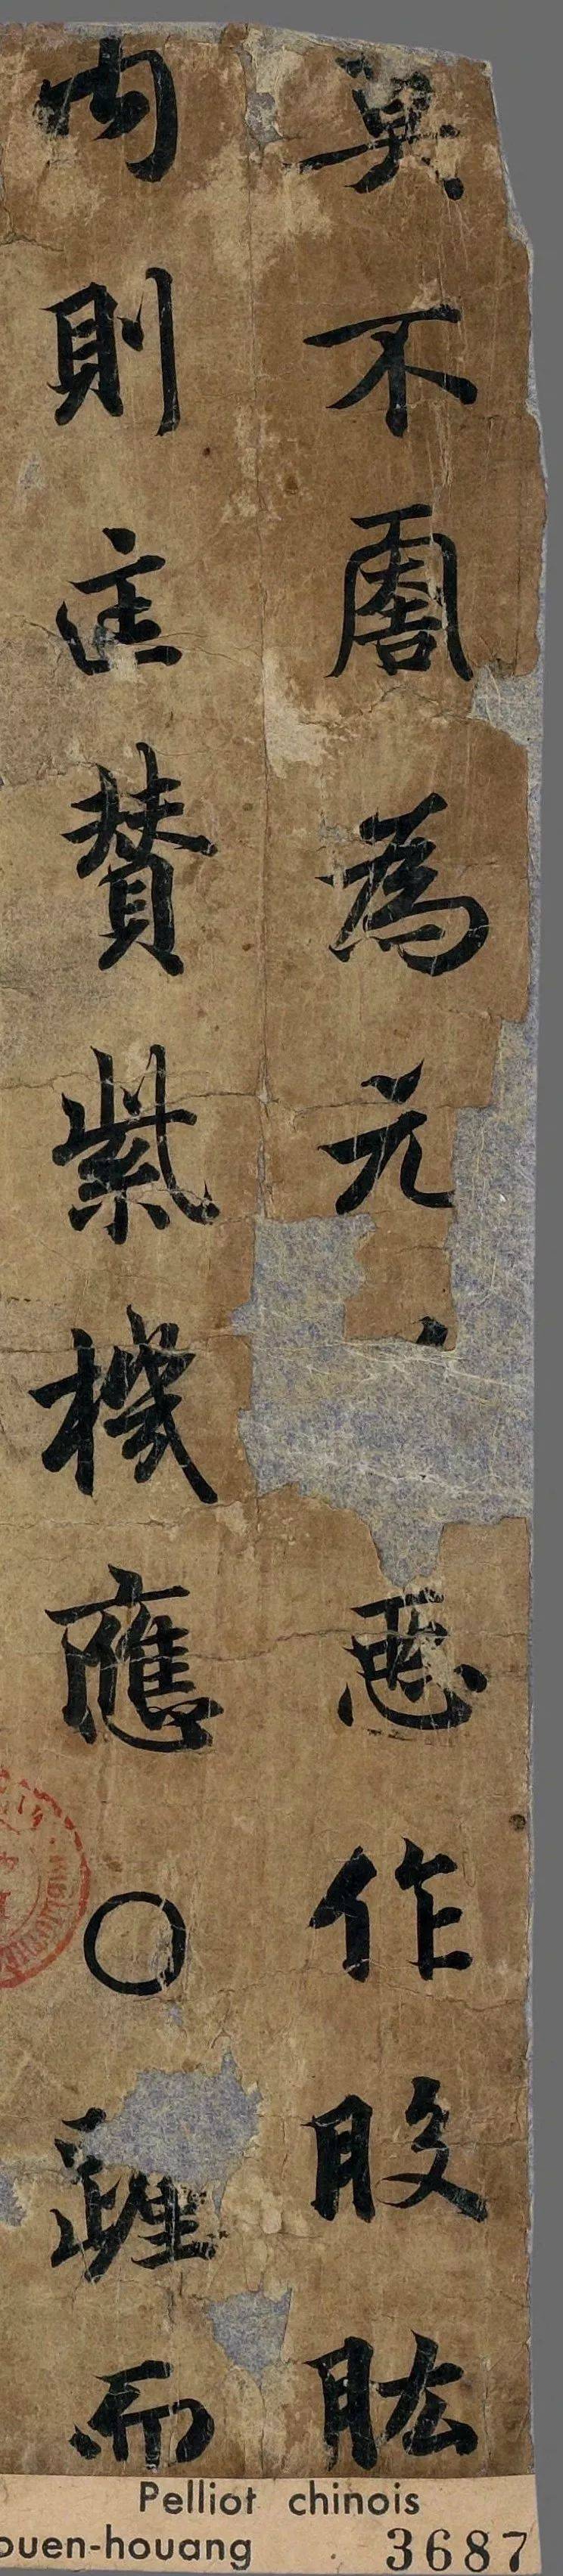 莫不為元悉作股肱
内則匡賛紫機應〇躔而
Pelliot chinois
ouen-houang 3687